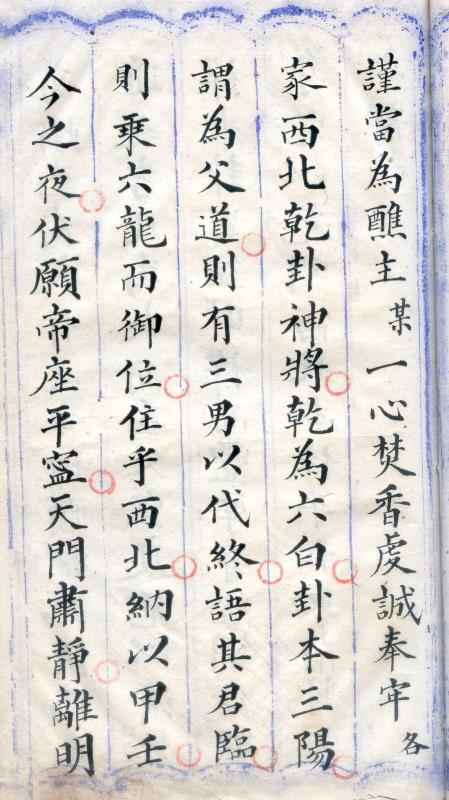 謹當為醮主某一心焚香虔誠奉牢各
家西北乾卦神將乾為六白卦本三陽
謂為父道則有三男以代終語其君臨
則乘六龍而御位住乎西北納以甲壬
今之夜伏願帝座平寍天門肅靜離明